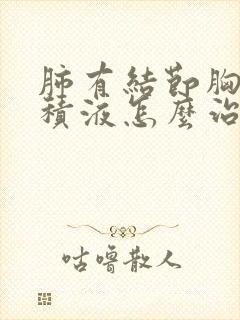 肺有結節胸
積液怎麼治
咕噜散人